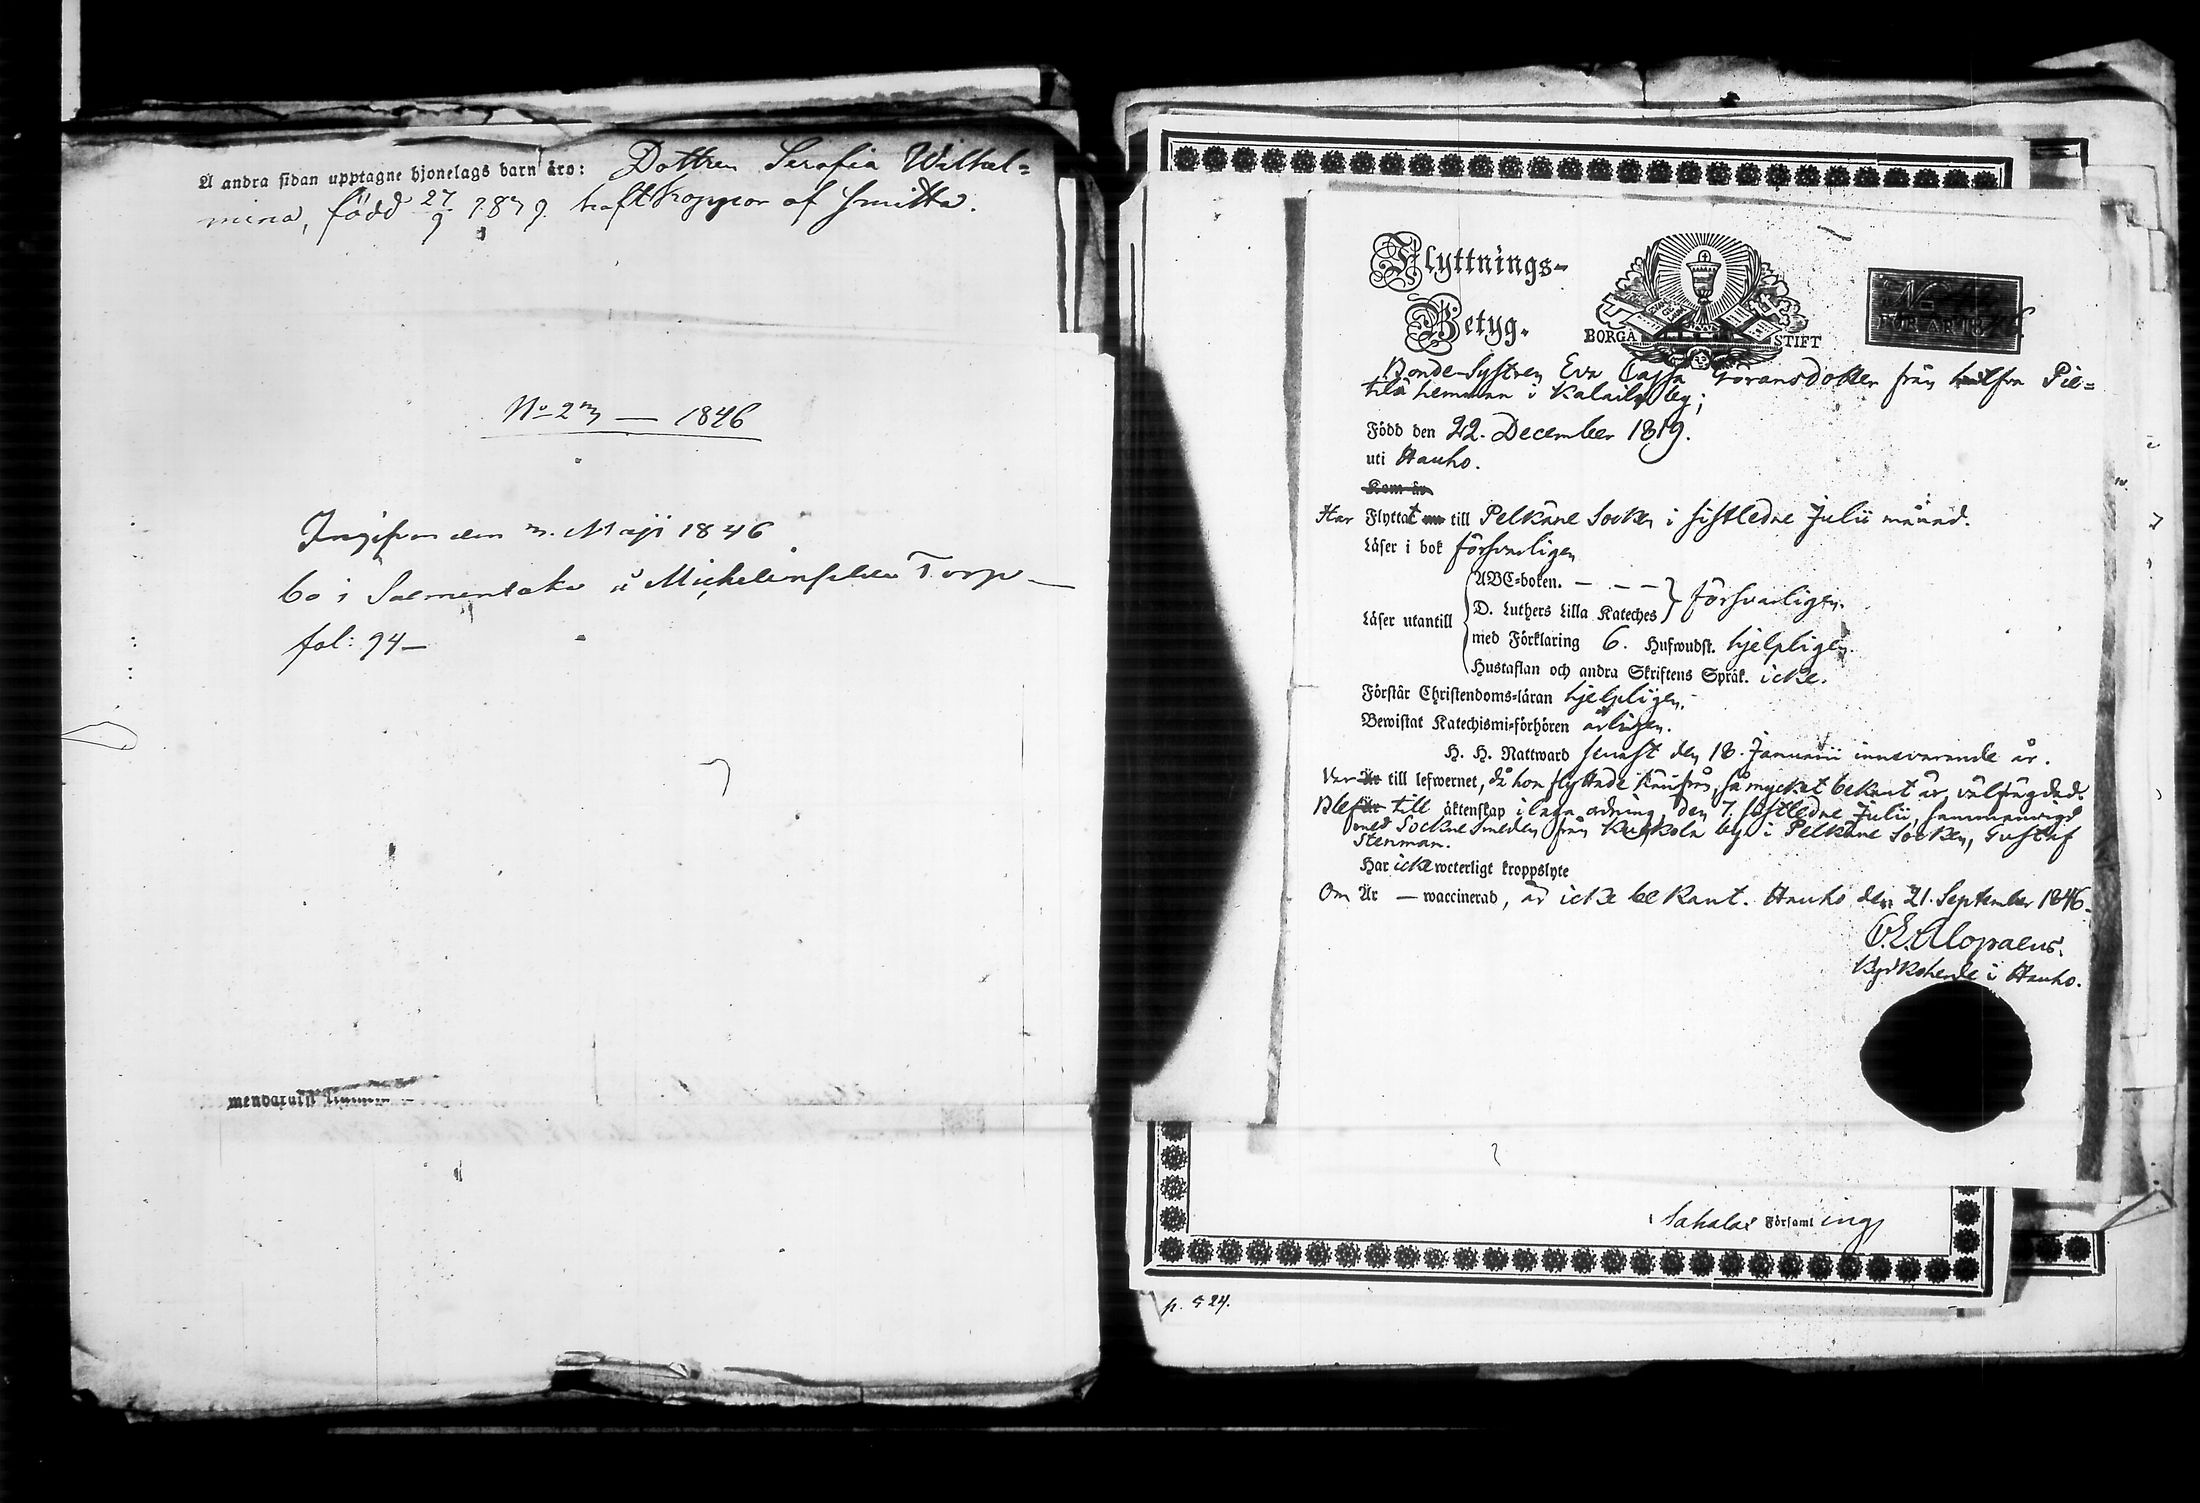 Å andra sidan upptagne hjonelags barn äro: Dottren Serafia Wilhel=
mina, född 27/9 1839. haft koppor af smitta.
No 23 — 1846
Ingifven den 3. Maji 1846
bo i Salmentaka å Torp —
fol: 94 —
Flyttnings-
Betyg.
BORGÅ STIFT
No
FÖR ÅR 18
Bonde-Systren Eva Cajsa Göransdotter från halfva Pie=
tilä hemman i Kalaila by;
Född den 22. December 1819.
uti Hauho.
Kom år
Har Flyttat nu till Pelkäne Socken i sistledne Julii månad.
Läser i bok försvarligen
Läser utantill
ABC-boken. — — —
D. Luthers Lilla Kateches
försvarligen.
med Förklaring 6. Hufwudst. hjelpligen.
Hustaflan och andra Skriftens Språk. icke.
Förstår Christendoms-läran hjelpligen.
Bewistat Katechismi-förhören årligen.
H. H. Nattward senast den 18. Januarii innevarande år.
Var är till lefwernet, då hon flyttade härifrån, så mycket bekant är, välfrägdad.
Blef är till äktenskap i laga ordning, den 7. sistledne Julii, sammanvigd
med Sockne Smeden från Kukkola by i Pelkäne Socken, Gustaf
Stenman.
Har icke weterligt kroppslyte
Om Är — waccinerad, är icke bekant. Hauho den 21. September 1846.
Alopaeus.
Kyrkoherde i Hauho.
Sahalax Församling
p. 524.